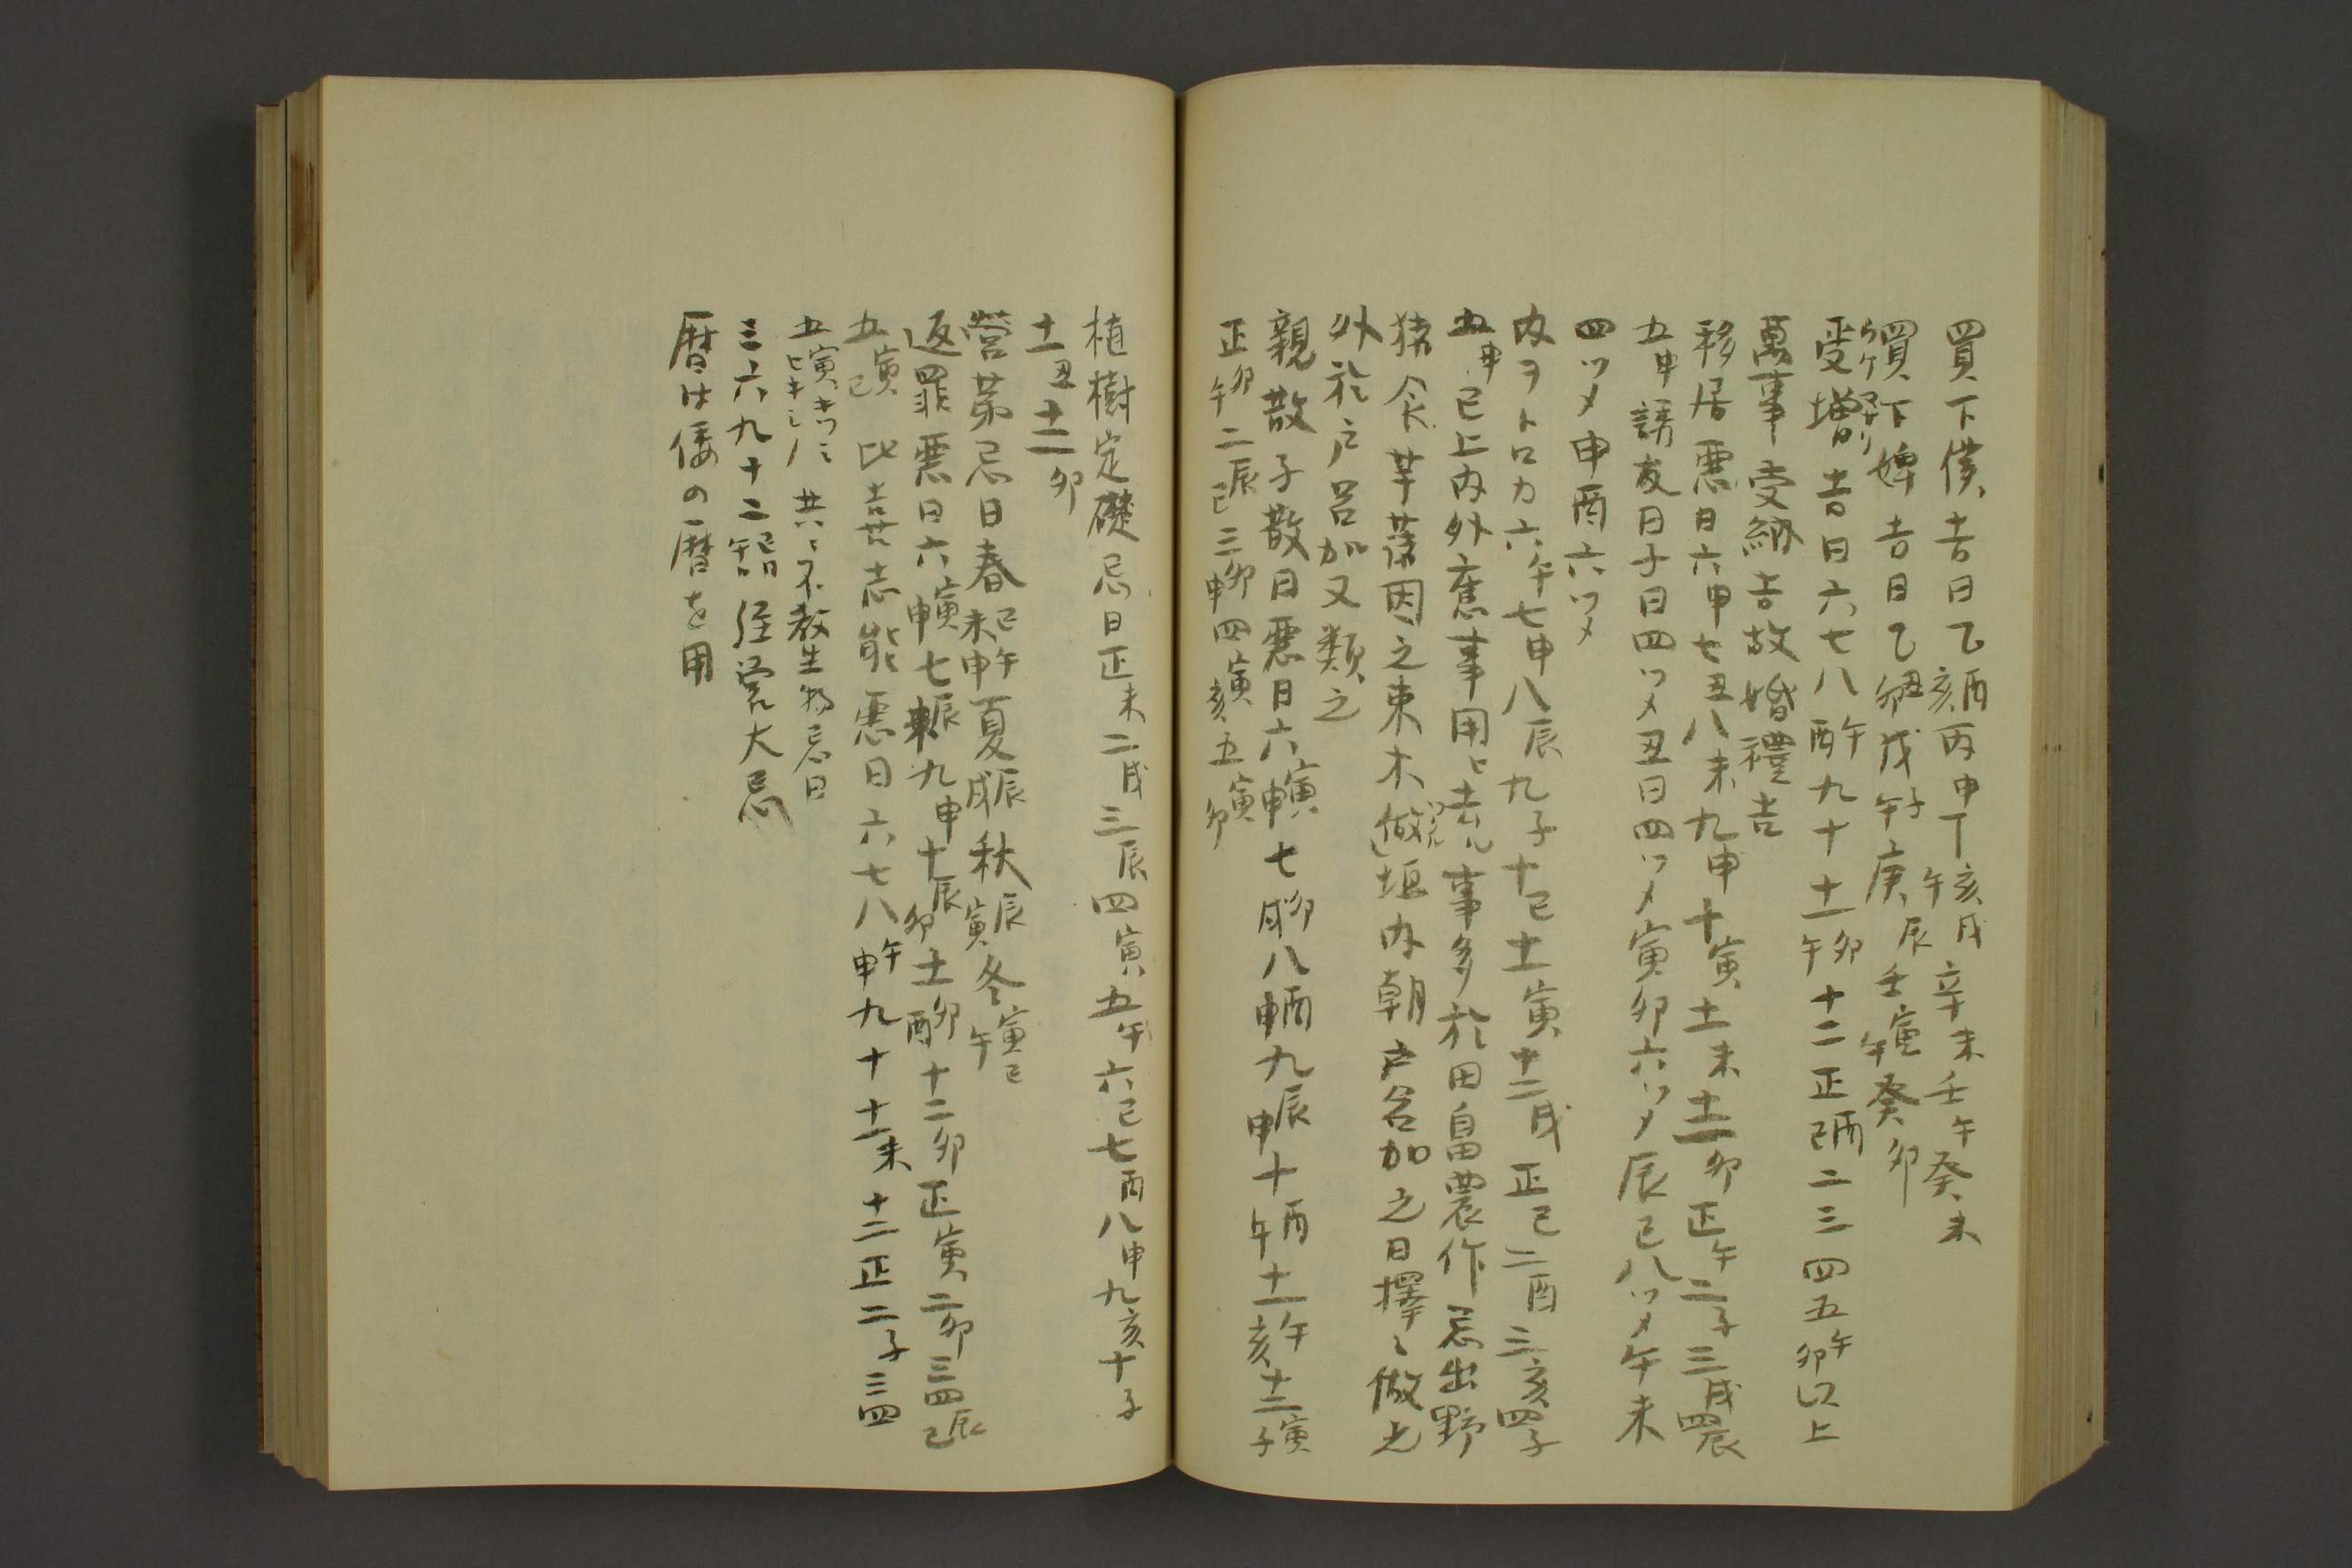 買下僕吉日乙酉亥丙申丁亥午戌辛未壬午癸未
買下婢吉日乙丑卯戊子午庚辰壬寅午癸卯
受増吉日六七八午酉九十十一卯午十二正酉巳二三四五午卯以上
萬事受納吉故婚禮吉
移居悪日六申七丑八未九申十寅十一未十二卯正午二子三戌四辰
五申 謗友日子日四ツメ丑日四ツメ寅卯六ツメ辰巳八ツメ午未
四ツメ申酉六ツメ
内ヲトロカ六午七申八辰九子十巳十一寅十二戌正巳二酉三亥四子
五申 已上内外舊事用ヒ去ル事多於田畠農作忌出野
猪食芋藷因之東木做垣内朝戸名加之日擇ヒ做之
外於戸呂加又類之
親散子散日悪日六寅申七卯戌八酉申九辰申十酉午十一午亥十二寅子
正卯午二辰巳三卯申四寅亥五寅卯
植樹定礎忌日正未二戌三辰四寅五午六巳七酉八申九亥十子
十一丑十二卯
營第忌日春巳午未申夏辰戌秋辰寅冬寅巳午
返罪悪日六寅申七辰未九申十辰卯十一卯酉十二卯正寅二卯三四辰巳
五寅巳 比吉共志能悪日六七八午申九十十一未十二正二子三四
五寅 共ニ不教生物忌日
三六九十二 經営大忌
暦は倭の暦を用